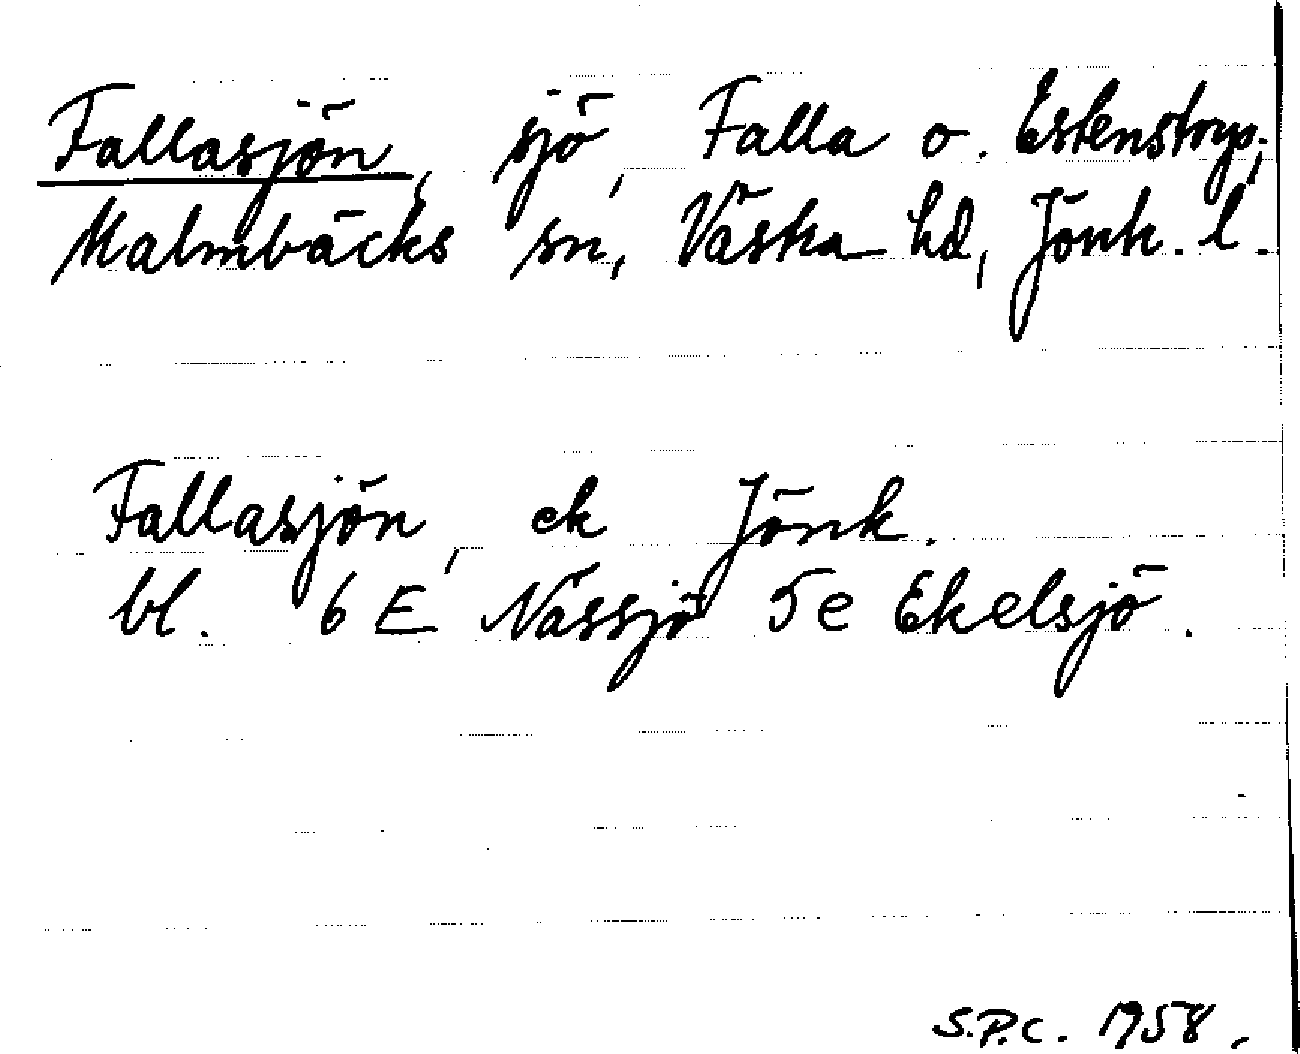 Fallasjön, sjö, Falla o. Estenstorp;
Malmbäcks sn, Västra hd, Jönk. l.
Fallasjön, ek Jönk.
bl. 6 E Nässjö 5e Ekelsjö.
S.P.C. 1958.